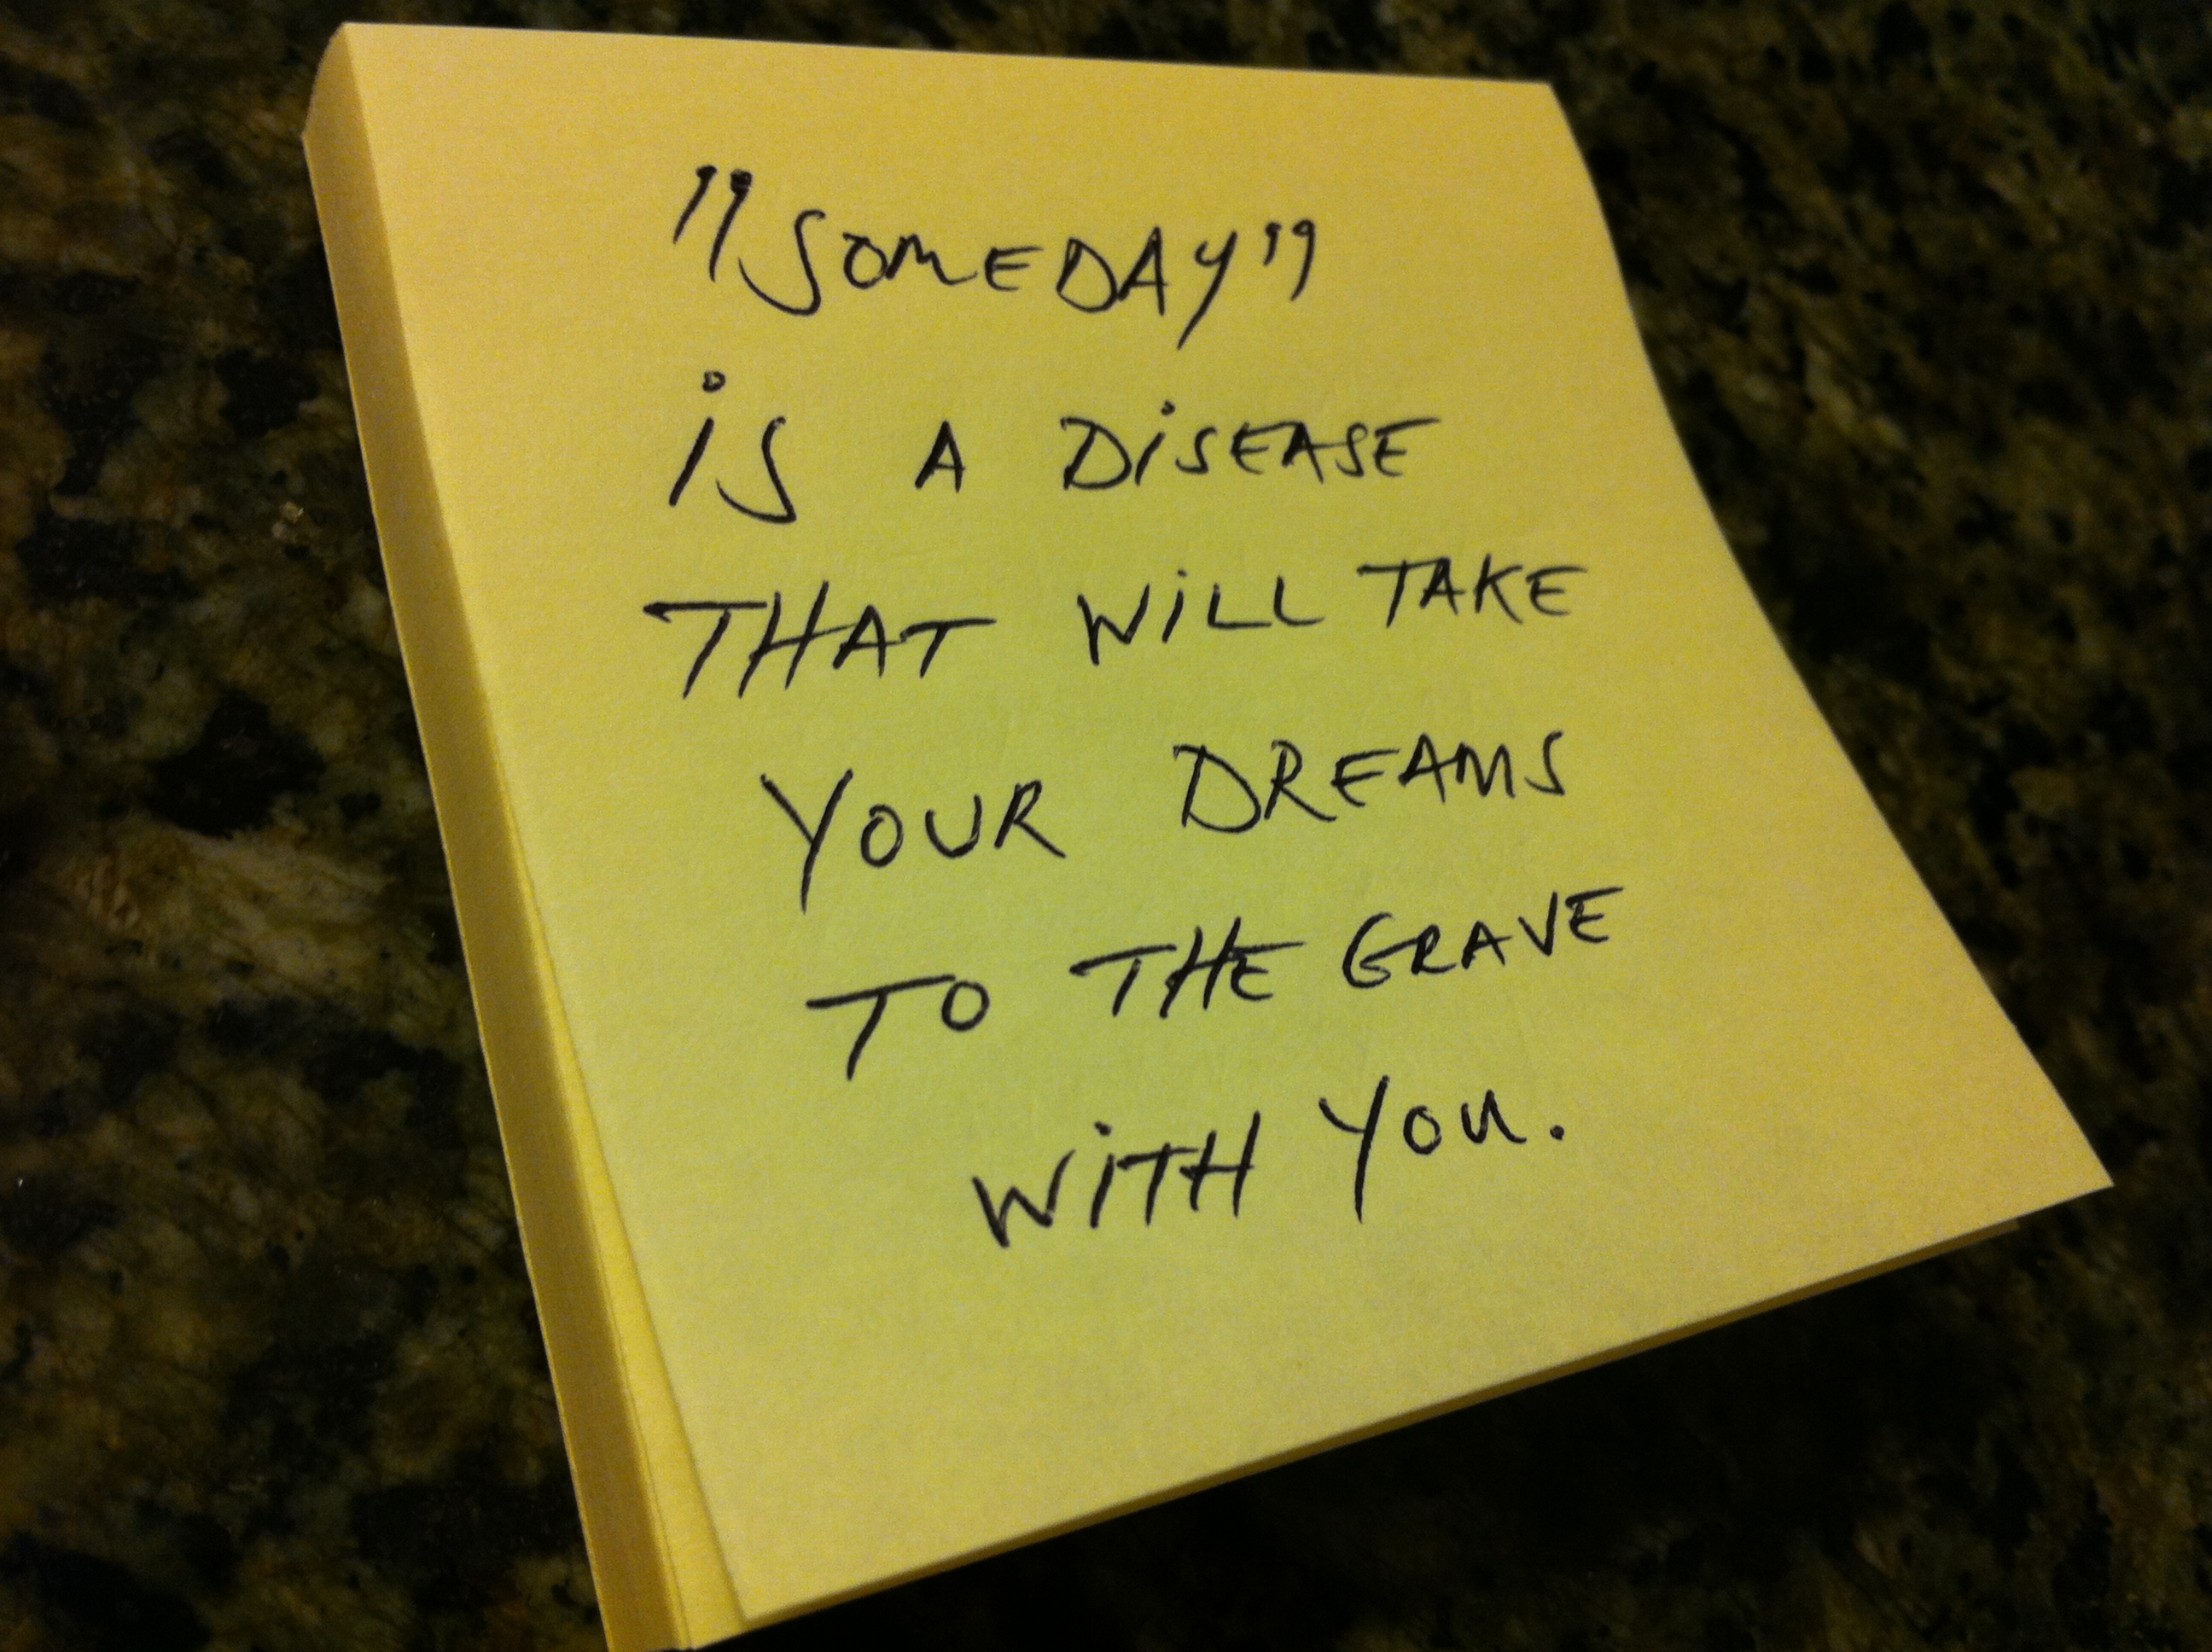 "SOMEDAY"
iS A DiSEASE
THAT WiLL TAKE
YOUR DREAMS
TO THE GRAVE
WiTH YOU.